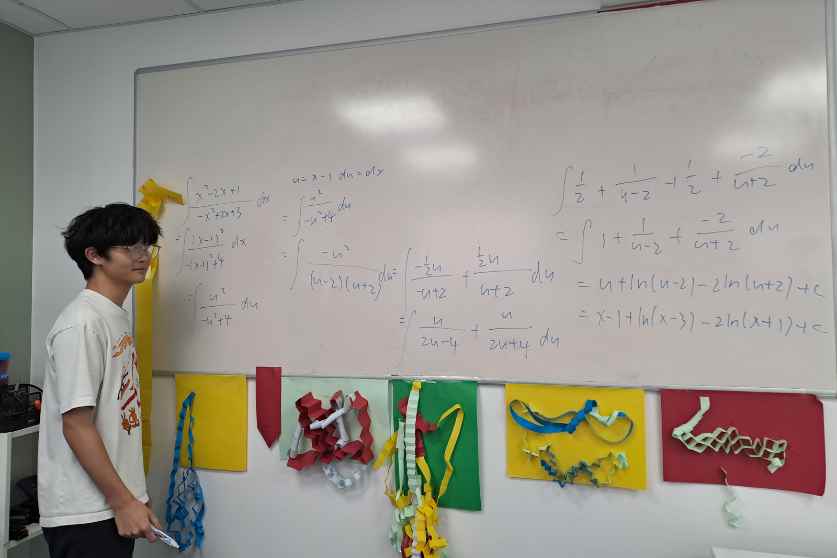 ∫ (x²-2x+1)/(-x²+2x+3) dx
= ∫ (x-1)²/(-(x-1)²+4) dx
= ∫ u²/(-u²+4) du
u = x-1 du = dx
= ∫ u²/(-u²+4) du
= ∫ -u²/((u-2)(u+2)) du = ∫ (-½u)/(-u+2) + (½u)/(u+2) du
= ∫ u/(2u-4) + u/(2u+4) du
∫ 1/2 + 1/(u-2) + 1/2 + (-2)/(u+2) du
= ∫ 1 + 1/(u-2) + (-2)/(u+2) du
= u + ln(u-2) - 2ln(u+2) + c
= x-1 + ln(x-3) - 2ln(x+1) + c